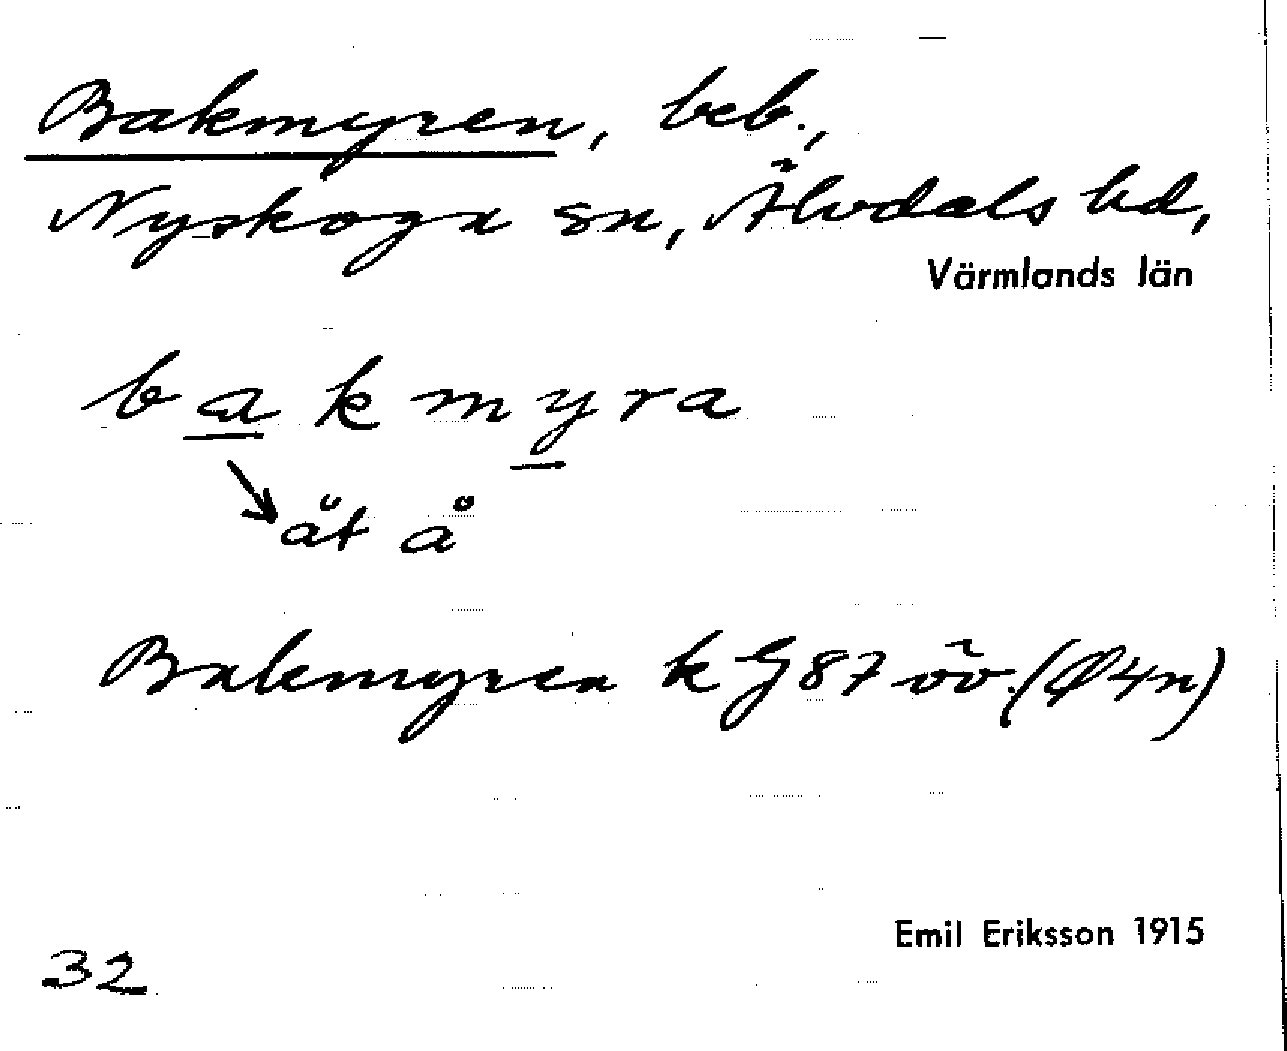 Bakmyren, beb.,
Nyskoga sn, Älvdals hd,
Värmlands län
bakmyra
åt å
Bakmyren k G 87 öv. (Ø4n)
Emil Eriksson 1915
32